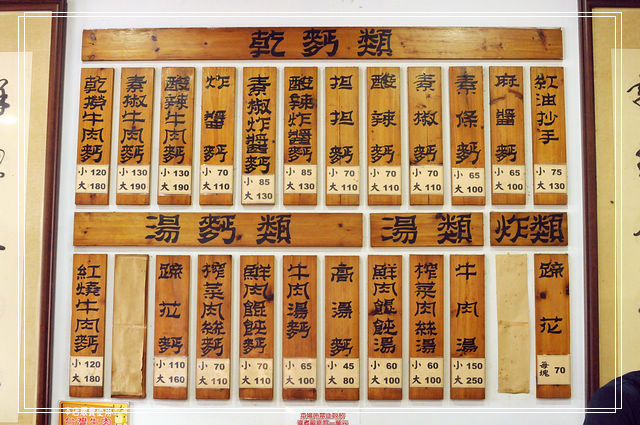 乾麪類
乾撈牛肉麪
小 120
大 180
素椒牛肉麪
小 130
大 190
酸辣牛肉麪
小 130
大 190
炸醬麪
小 70
大 110
素椒炸醬麪
小 85
大 130
酸辣炸醬麪
小 85
大 130
担担麪
小 70
大 110
酸辣麪
小 70
大 110
素椒麪
小 70
大 110
素條麪
小 65
大 100
麻醬麪
小 65
大 100
紅油抄手
小 75
大 130
湯麪類
紅燒牛肉麪
小 120
大 180
蹄花麪
小 110
大 160
榨菜肉絲麪
小 70
大 110
鮮肉餛飩麪
小 70
大 110
牛肉湯麪
小 65
大 100
高湯麪
小 45
大 80
湯類
鮮肉餛飩湯
小 60
大 100
榨菜肉絲湯
小 60
大 100
牛肉湯
小 150
大 250
炸類
蹄花
每塊 70